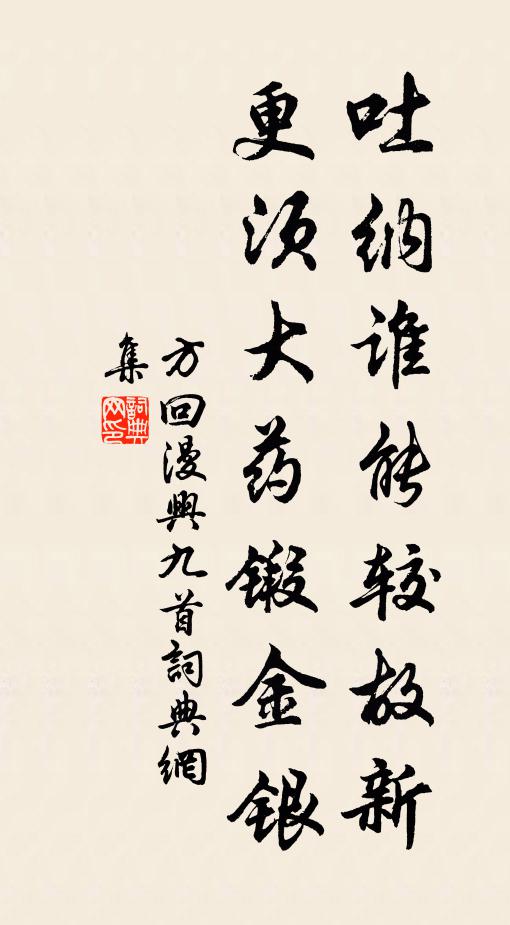 吐纳谁能较故新
更须大药锻金银
方回漫興九首詞典網
集
詞典網印